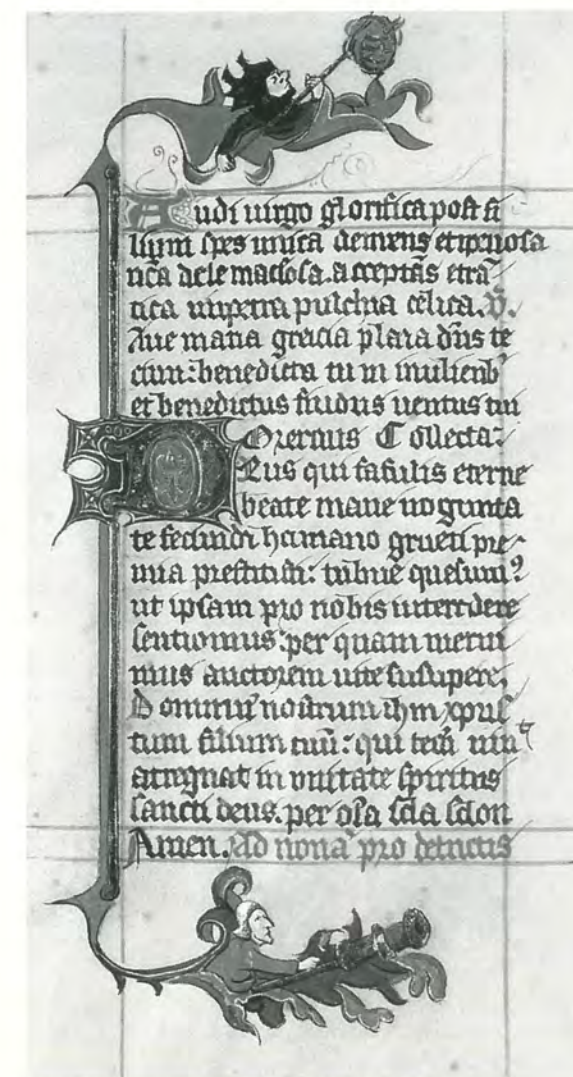 Audi uirgo glorifica post fi
lium spes unica clemens et
nr̃a dele maculosa. acceptãs etra
tica impetra pulchra celica. V.
Aue maria gracia plena dñs te
cum: benedicta tu in mulierib'
et benedictus fructus uentus tui
Oremus Collecta.
Deus qui salutis eterne
beate marie
te fecundi humano pre
mia prestitisti: tribue quesum9
ut ipsam pro nobis intercedere
sentiamus: per quam merui
mus auctorem uite suscipere.
Dominũ nostrum ihm xpm
tuum filium tuũ: qui tecũ uiu
at regnat in unitate spiritus
sancti deus. per oĩa scła scłon
Amen. Ad nonã pro defunctis